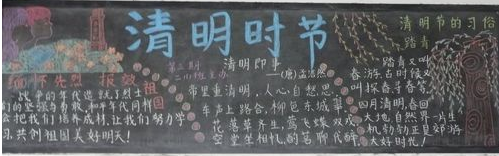 清明时节
缅怀先烈 报效祖国
战争的年代造就了烈士
们的坚强与勇敢,和平年代同样
会把我们培养成材,让我们努力学
习,共创祖国美好明天!
第三期
二小组主办
清明即事
—(唐)孟浩然
帝里重清明,人心自愁思
车声上路合,柳色东城翠
花落草齐生,莺飞蝶双戏
空堂坐相忆,酌茗聊代醉
清明节的习俗
踏青
踏青又叫
春游,古时候又
叫探春、寻春等。
四月清明,春回
大地,自然界一片生
机勃勃,正是郊游
大好时光。